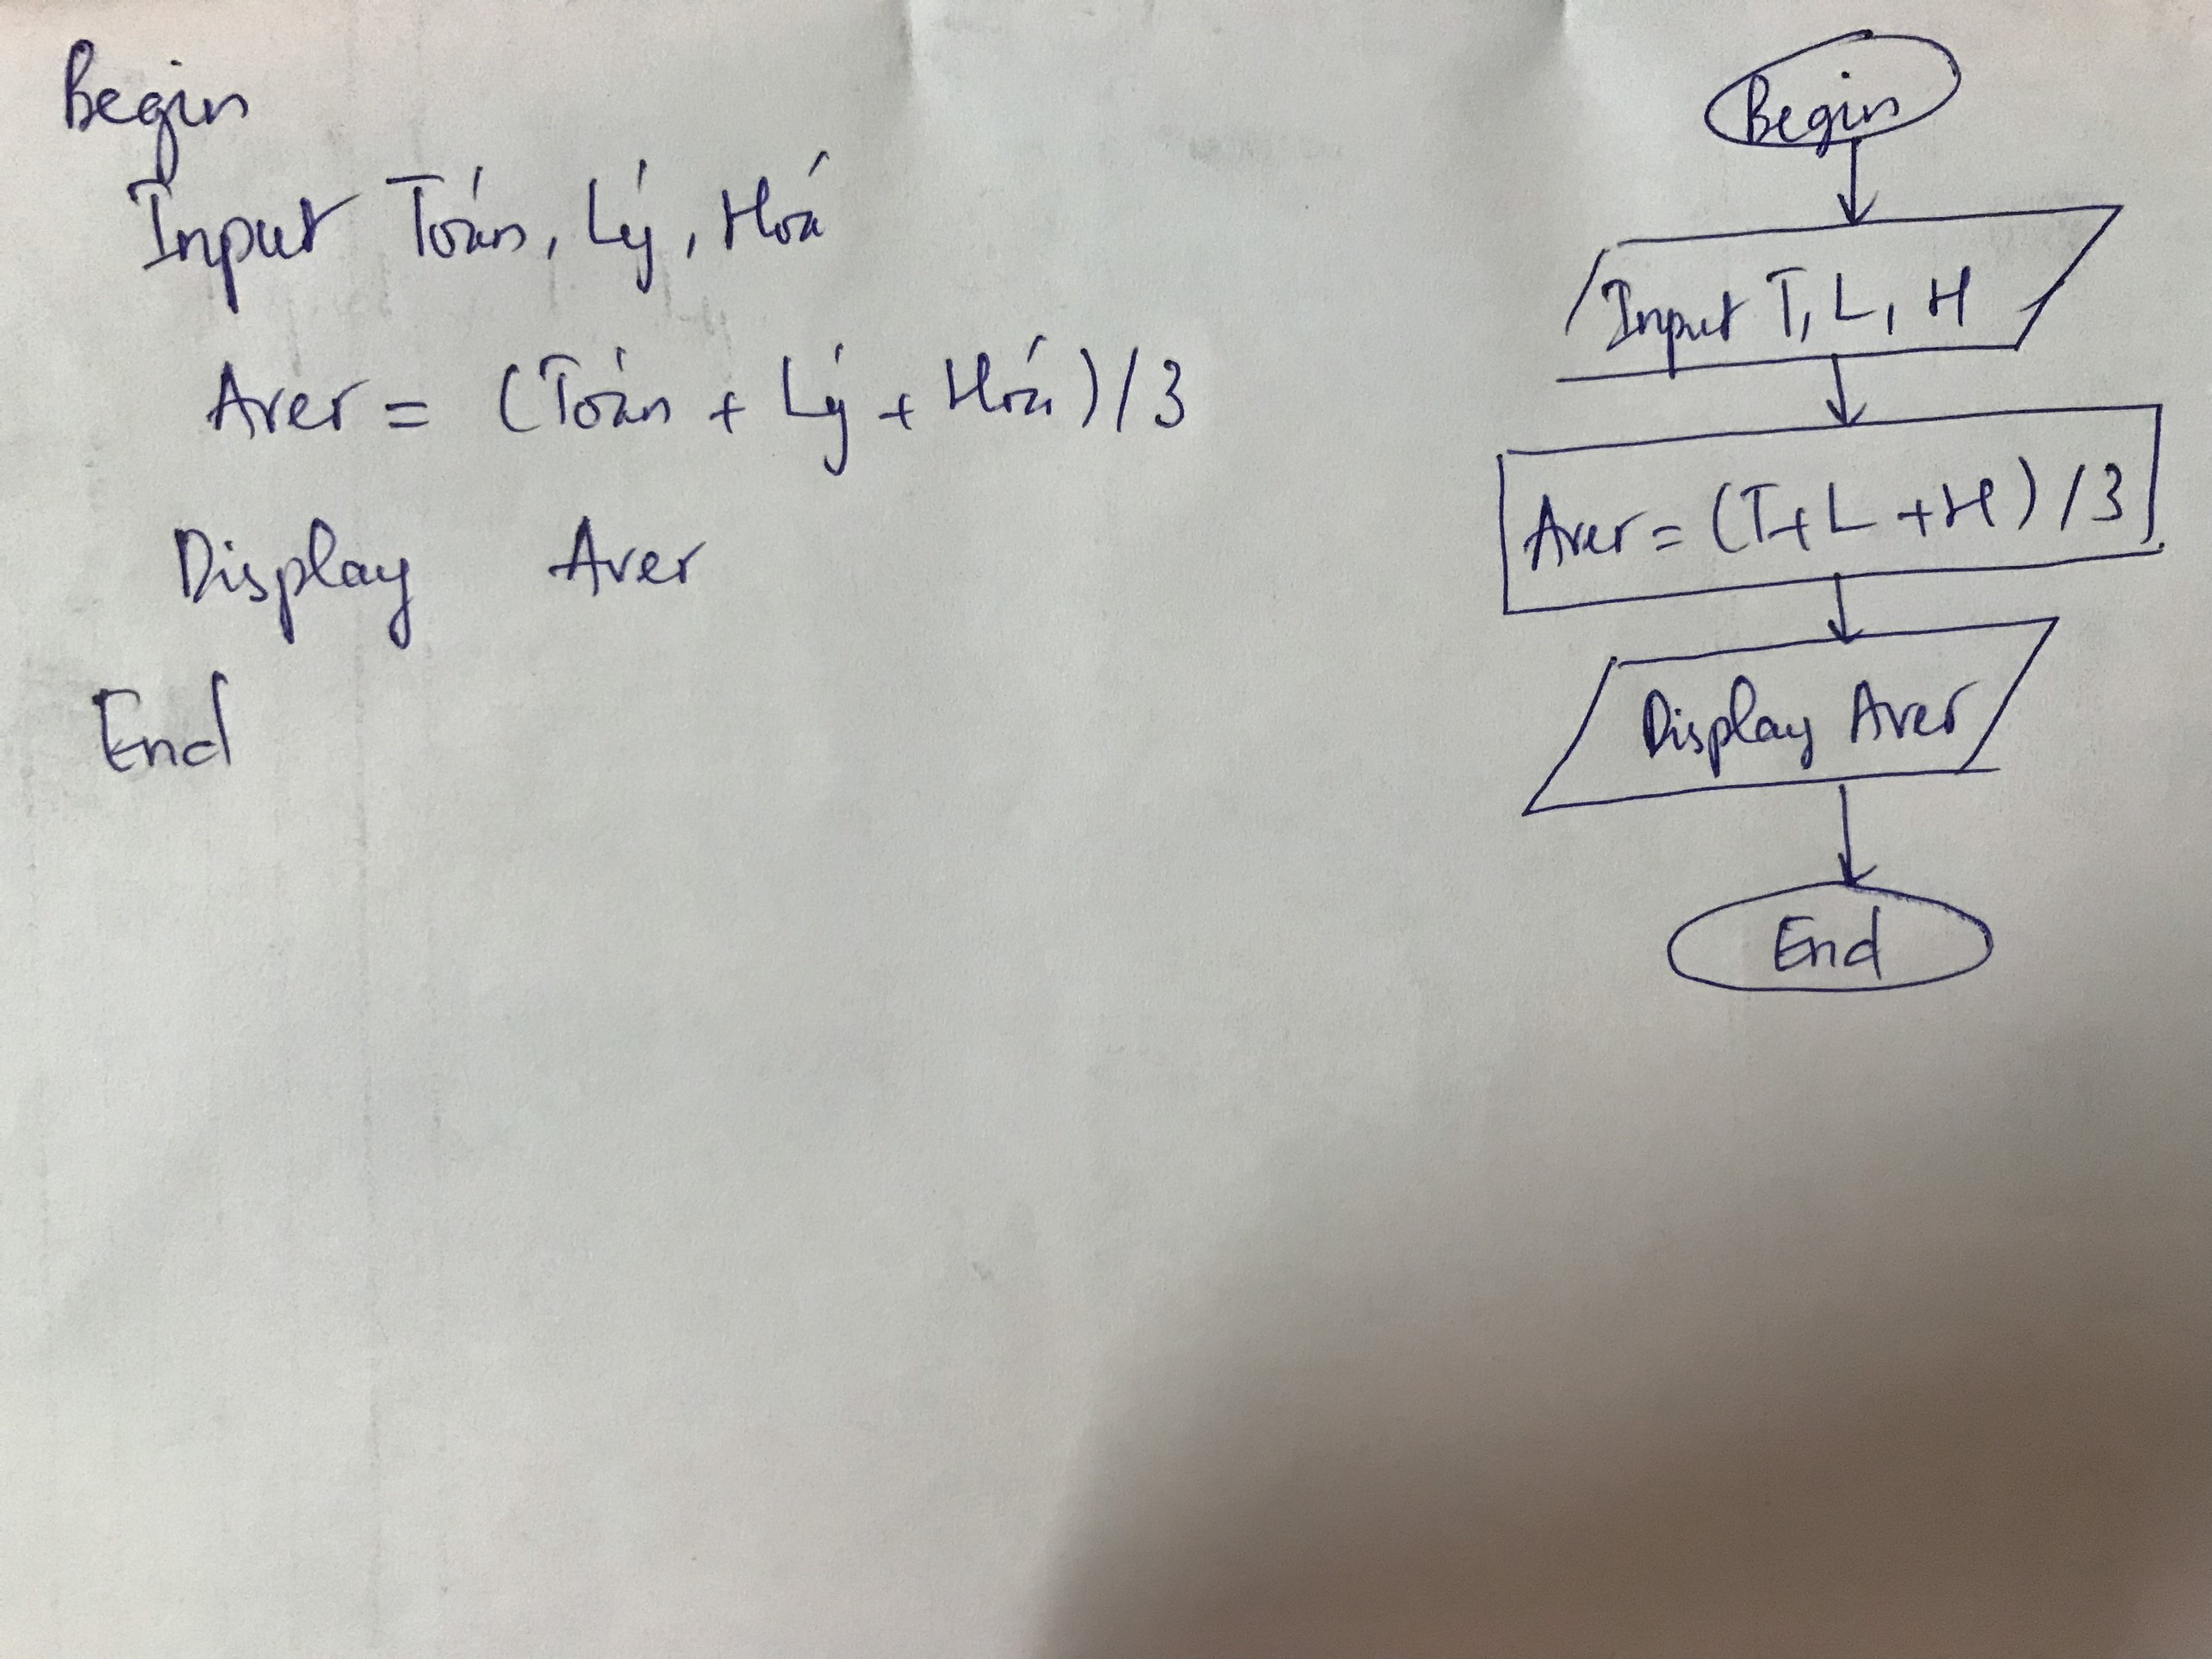 Begin
Input Toán, Lý, Hoá
Aver = (Toán + Lý + Hoá)/3
Display Aver
End
Begin
Input T, L, H
Aver = (T+L+H)/3
Display Aver
End